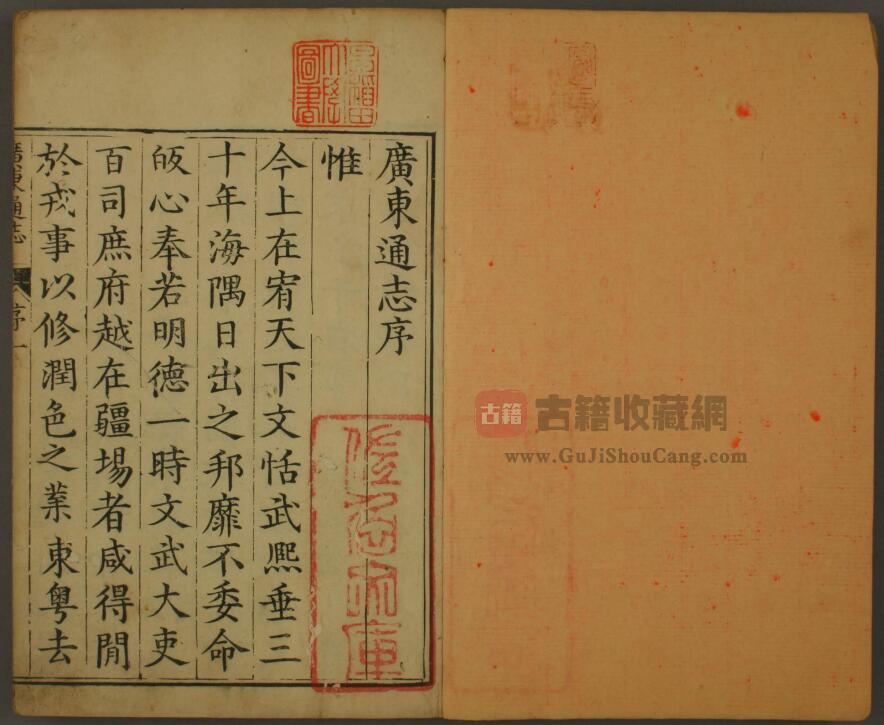 廣東通志序
惟
今上在宥天下文恬武熈垂三
十年海隅日出之邦靡不委命
皈心奉若明德一時文武大吏
百司庶府越在疆場者咸得閒
於戎事以修潤色之業東粤去
廣東通志
序
一
早稻田大學圖書
佐伯文庫
古籍
古籍收藏網
www.GuJiShouCang.com